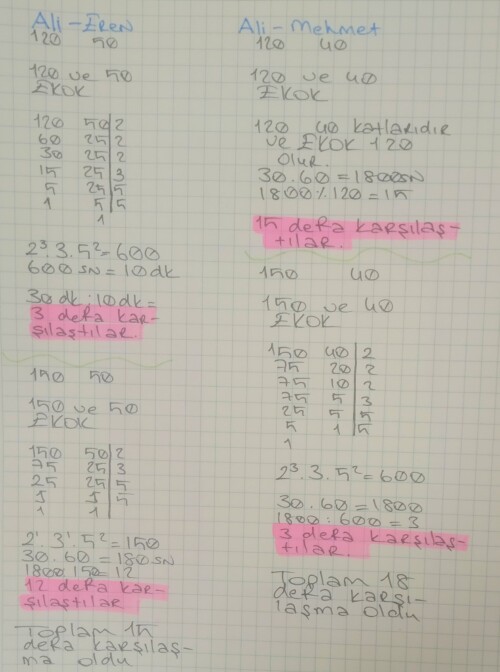 Ali - EREN
120 50
120 ve 50
EKOK
120 50 2
60 25 2
30 25 2
15 25 3
5 25 5
1 5 5
1
2³.3.5²=600
600 SN = 10dk
30dk:10dk=
3 defa kar-
şılaştılar.
150 50
150 ve 50
EKOK
150 50 2
75 25 3
25 25 5
5 5 5
1 1
2¹.3¹.5²=150
30.60=180SN
1800:150=12
12 defa kar-
şılaştılar
Toplam 15
defa karşılaş-
ma oldu
Ali - Mehmet
120 40
120 ve 40
EKOK
120 40 katlarıdır
ve EKOK 120
olur.
30.60=1800SN
1800%120=15
15 defa karşılaş-
tılar.
150 40
150 ve 40
EKOK
150 40 2
75 20 2
75 10 2
75 5 3
25 5 5
5 1 5
1
2³.3.5²=600
30.60=1800
1800:600=3
3 defa karşılaş-
tılar.
Toplam 18
defa karşı-
laşma oldu